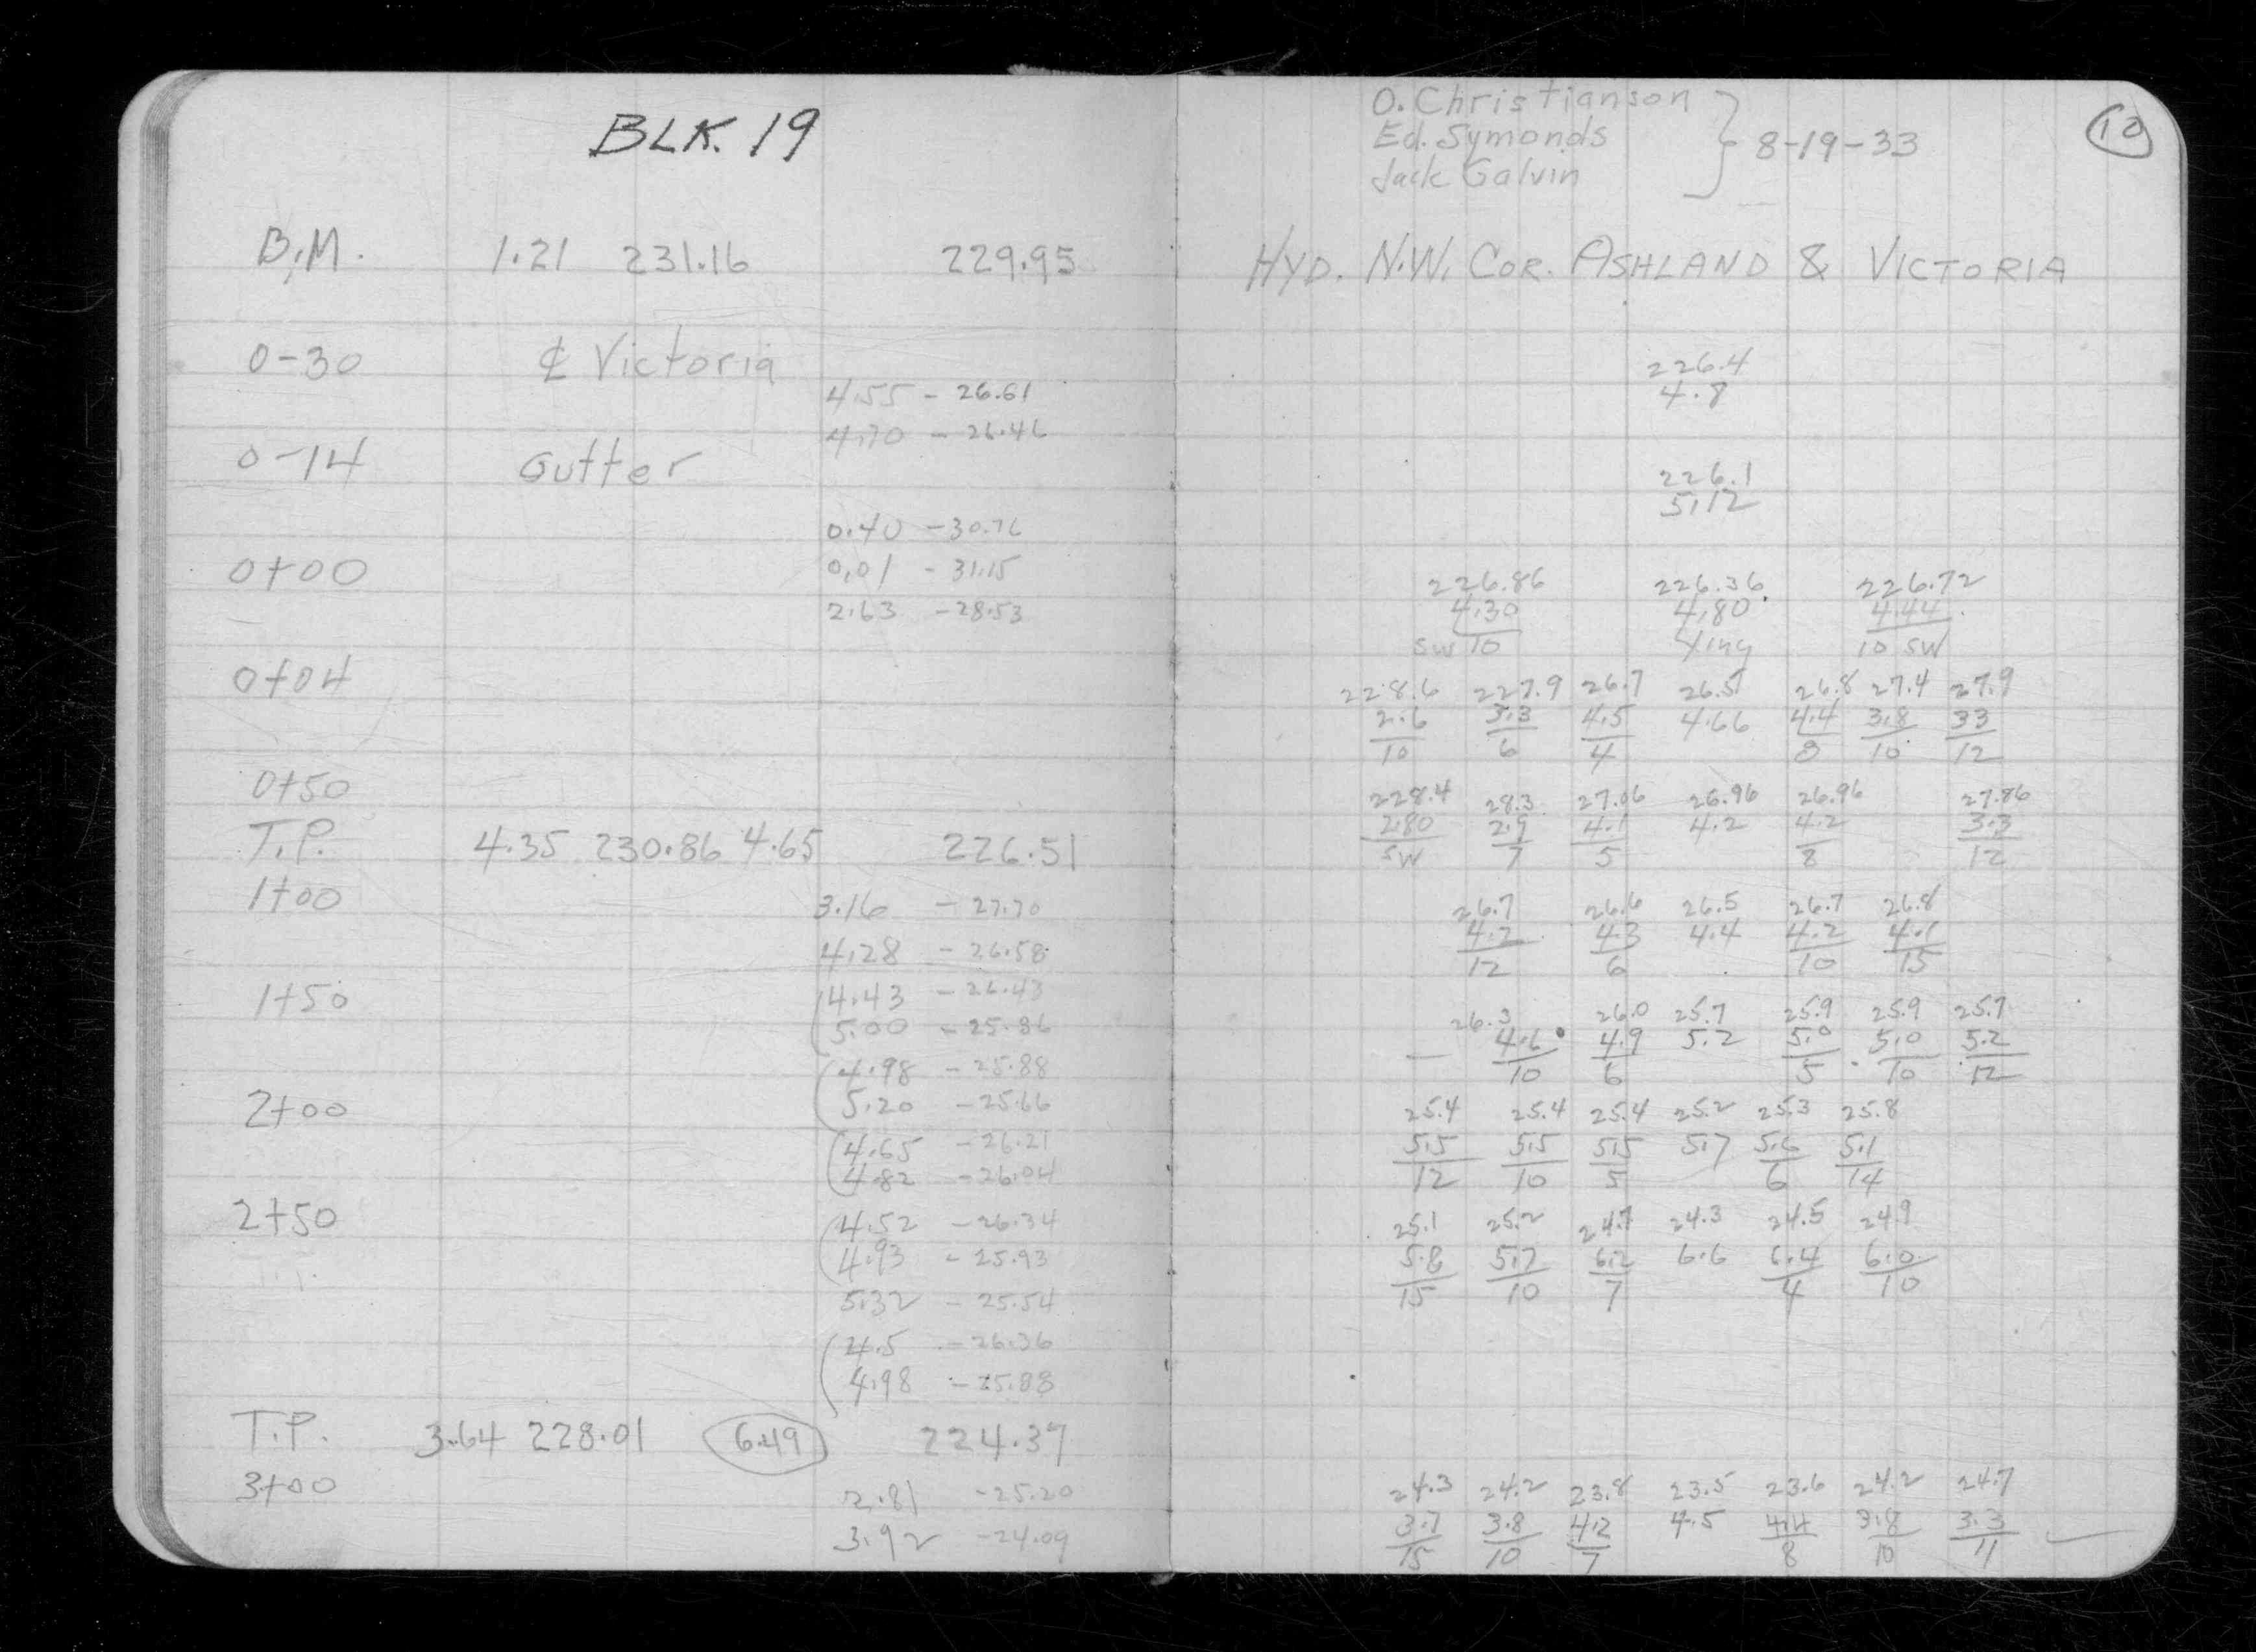 BLK. 19
B.M. 1.21 231.16 229.95
0-30 ℄ Victoria
4.55 - 26.61
4.70 - 26.46
0-14 Gutter
0.40 - 30.76
0+00 0.01 - 31.15
2.63 - 28.53
0+04
0+50
T.P. 4.35 230.86 4.65 226.51
1+00 3.16 - 27.70
4.28 - 26.58
1+50 4.43 - 26.43
5.00 - 25.86
4.98 - 25.88
2+00 5.20 - 25.66
4.65 - 26.21
4.82 - 26.04
2+50 4.52 - 26.34
4.93 - 25.93
5.32 - 25.54
4.5 - 26.36
4.98 - 25.88
T.P. 3.64 228.01 6.49 224.37
3+00 2.81 - 25.20
3.92 - 24.09
O. Christianson
Ed. Symonds
Jack Galvin
8-19-33
10
HYD. N.W. COR. ASHLAND & VICTORIA
226.4
4.8
226.1
5.12
226.86 226.36 226.72
4.30 4.80 4.44
SW 10 Xing 10 SW
228.6 227.9 26.7 26.5 26.8 27.4 27.9
2.6 3.3 4.5 4.66 4.4 3.8 33
10 6 4 8 10 12
228.4 28.3 27.06 26.96 26.96 27.86
2.80 2.9 4.1 4.2 4.2 3.3
SW 7 5 8 12
26.7 26.6 26.5 26.7 26.8
4.2 4.3 4.4 4.2 4.1
12 6 10 15
26.3 26.0 25.7 25.9 25.9 25.7
4.6 4.9 5.2 5.0 5.0 5.2
10 6 5 10 12
25.4 25.4 25.4 25.2 25.3 25.8
5.5 5.5 5.5 5.7 5.6 5.1
12 10 5 6 14
25.1 25.2 24.7 24.3 24.5 24.9
5.8 5.7 6.2 6.6 6.4 6.0
15 10 7 4 10
24.3 24.2 23.8 23.5 23.6 24.2 24.7
3.7 3.8 4.2 4.5 4.4 3.8 3.3
15 10 7 8 10 11